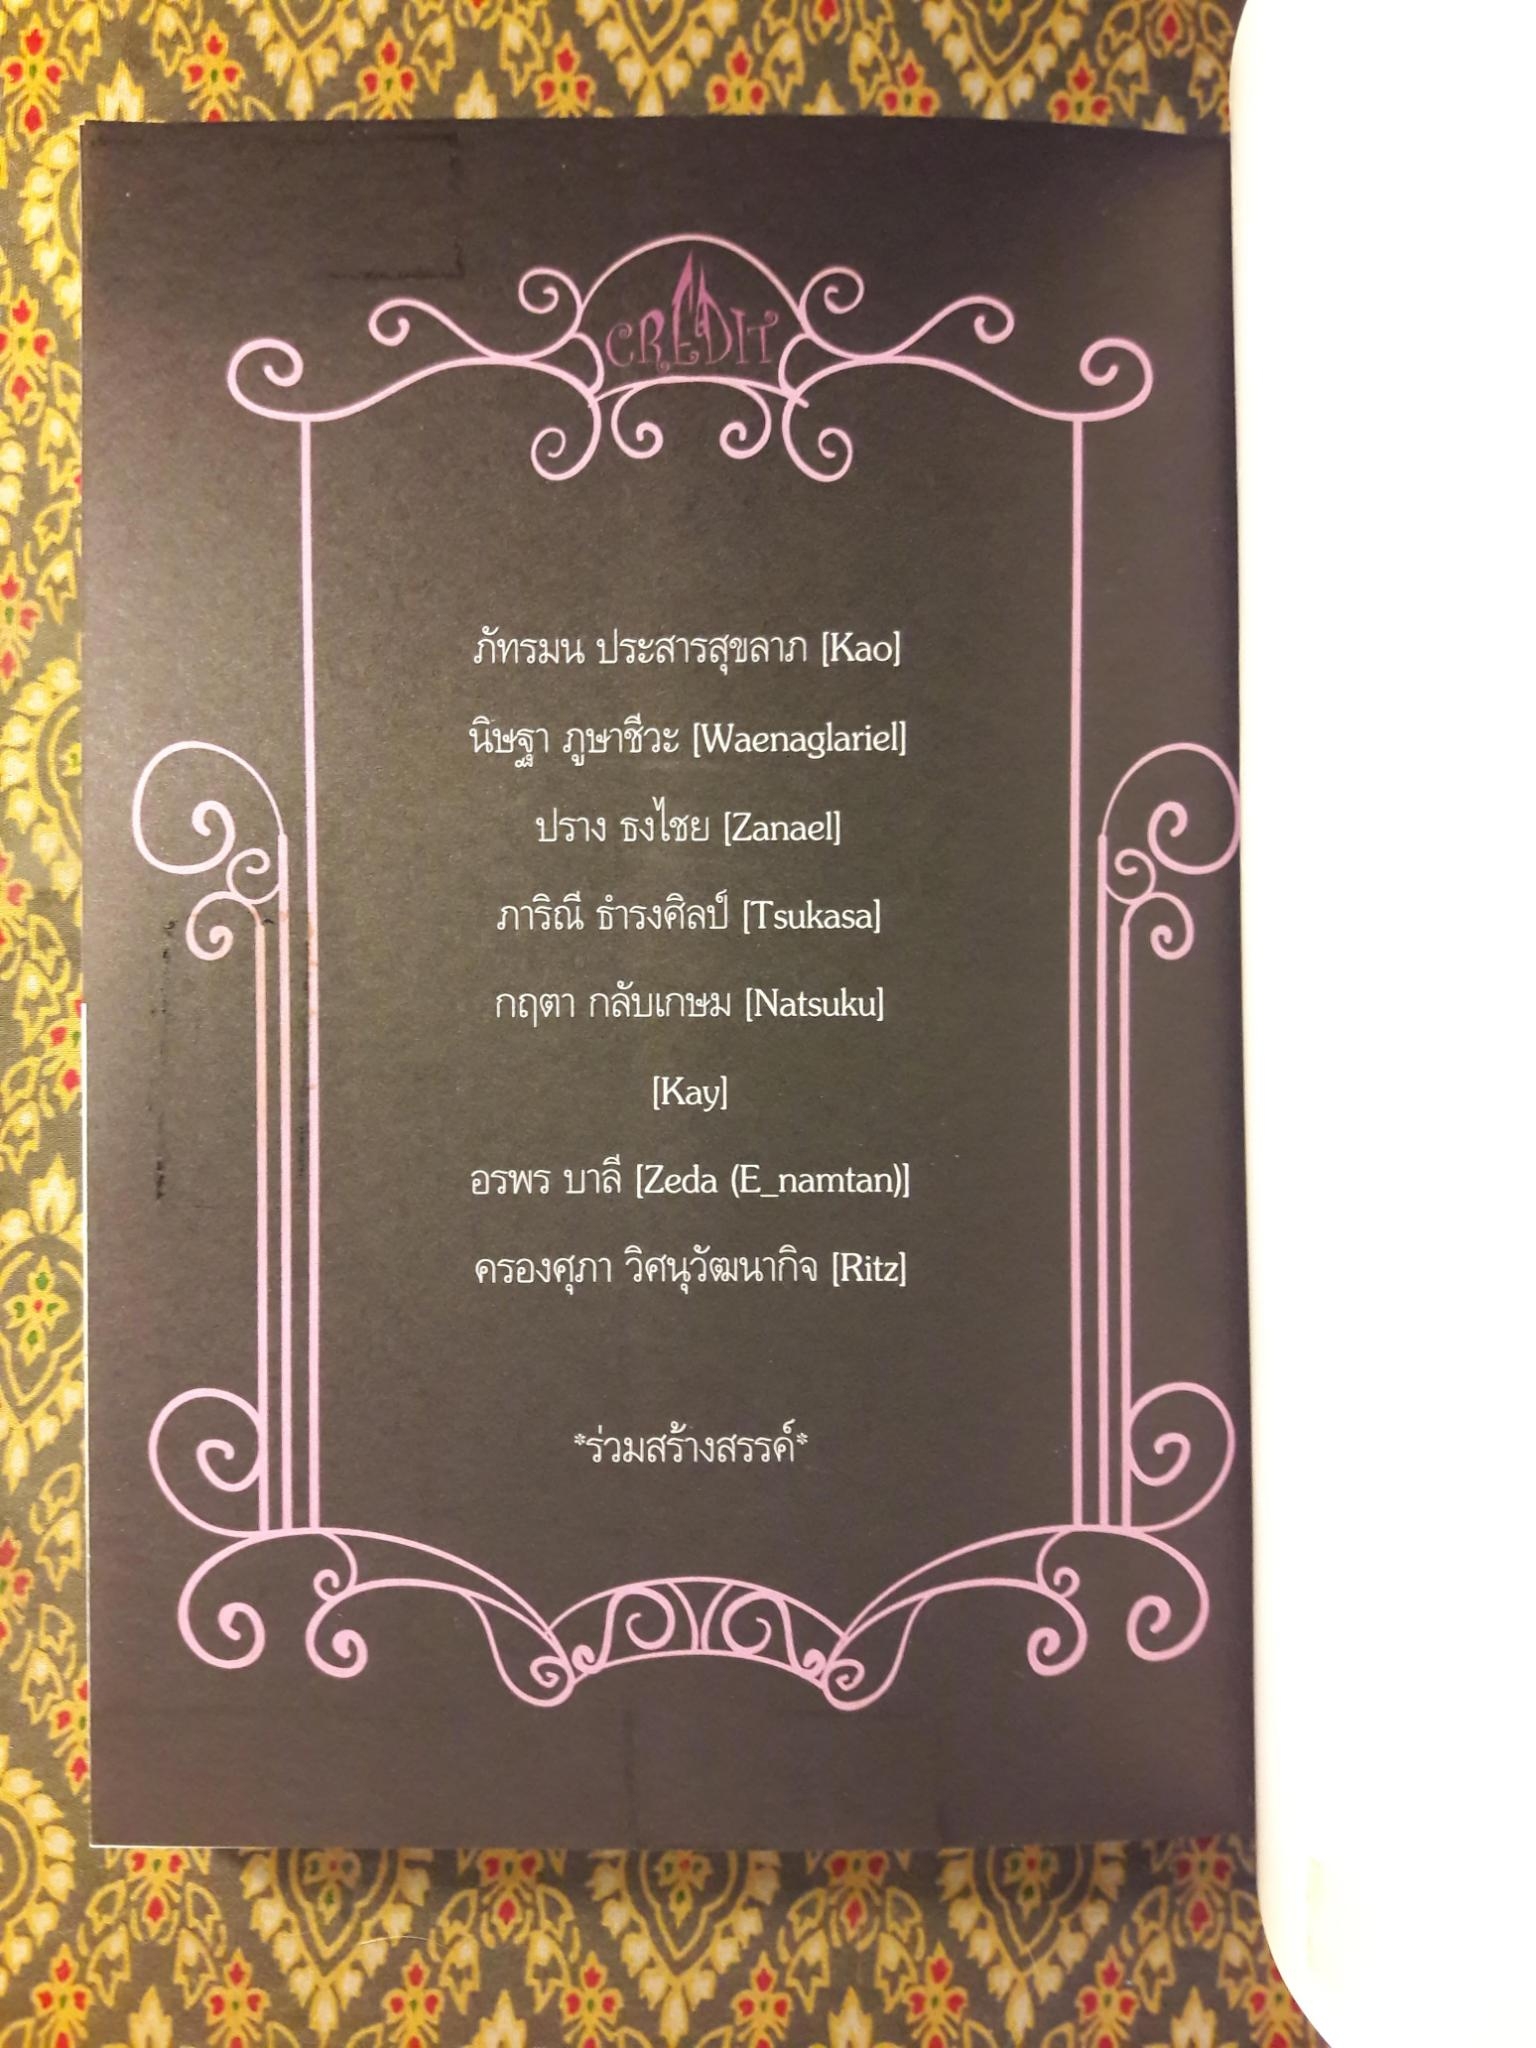 CREDIT
ภัทรมน ประสารสุขลาภ [Kao]
นิษฐา ภูษาชีวะ [Waenaglariel]
ปราง ธงไชย [Zanael]
ภาริณี ธำรงศิลป์ [Tsukasa]
กฤตา กลับเกษม [Natsuku]
[Kay]
อรพร บาลี [Zeda (E_namtan)]
ครองศุภา วิศนุวัฒนากิจ [Ritz]
*ร่วมสร้างสรรค์*